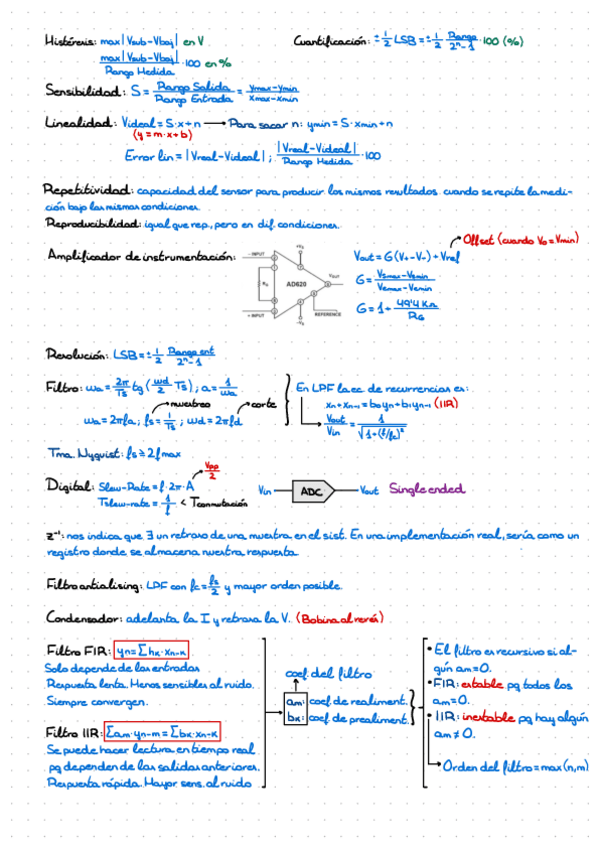 Histéresis: max|Vsub-Vbaj| en V
max|Vsub-Vbaj| / Rango Medida · 100 en %
Cuantificación: ±1/2 LSB = ±1/2 Rango/2ⁿ-1 · 100 (%)
Sensibilidad: S = Rango Salida / Rango Entrada = ymax-ymin / xmax-xmin
Linealidad: Videal = S·x+n → Para sacar n: ymin = S·xmin+n
(y=m·x+b)
Error lin = |Vreal-Videal| ; |Vreal-Videal| / Rango Medida · 100
Repetitividad: capacidad del sensor para producir los mismos resultados cuando se repite la medi-
ción bajo las mismas condiciones.
Reproducibilidad: igual que rep., pero en dif. condiciones.
Offset (cuando Vo=Vmin)
Amplificador de instrumentación:
- INPUT
+ INPUT
RG
AD620
+VS
-VS
VOUT
REFERENCE
Vout = G(V+-V-)+Vref
G = Vsmax-Vsmin / Vemax-Vemin
G = 1+ 49'4 KΩ / RG
Resolución: LSB = ±1/2 Rango ent / 2ⁿ-1
Filtro: wa = 2π/Ts tg(wd/2 Ts) ; a = 1/wa
muestreo
corte
wa = 2πfa ; fs = 1/Ts ; wd = 2πfd
En LPF la ec de recurrencias es:
xn+xn-1 = b0yn+b1yn-1 (IIR)
Vout/Vin = 1/√1+(f/fc)²
Tma. Nyquist: fs ≥ 2fmax
Vpp/2
Digital: Slew-Rate = f·2π·A
Tslew-rate = 1/f < Tconmutación
Vin → ADC → Vout Single ended
z⁻¹: nos indica que ∃ un retraso de una muestra en el sist. En una implementación real, sería como un
registro donde se almacena nuestra respuesta
Filtro antialising: LPF con fc = fs/2 y mayor orden posible.
Condensador: adelanta la I y retrasa la V. (Bobina al revés)
Filtro FIR: yn = Σhk·xn-k
Solo depende de las entradas
Respuesta lenta. Menos sensibles al ruido.
Siempre convergen.
Filtro IIR: Σam·yn-m = Σbk·xn-k
Se puede hacer lectura en tiempo real
pq dependen de las salidas anteriores.
Respuesta rápida. Mayor sens. al ruido
coef. del filtro
am: coef. de realiment.
bk: coef. de prealiment.
• El filtro es recursivo si al-
gún am=0.
• FIR: estable pq todos los
am=0.
• IIR: inestable pq hay algún
am≠0.
Orden del filtro = max(n,m)